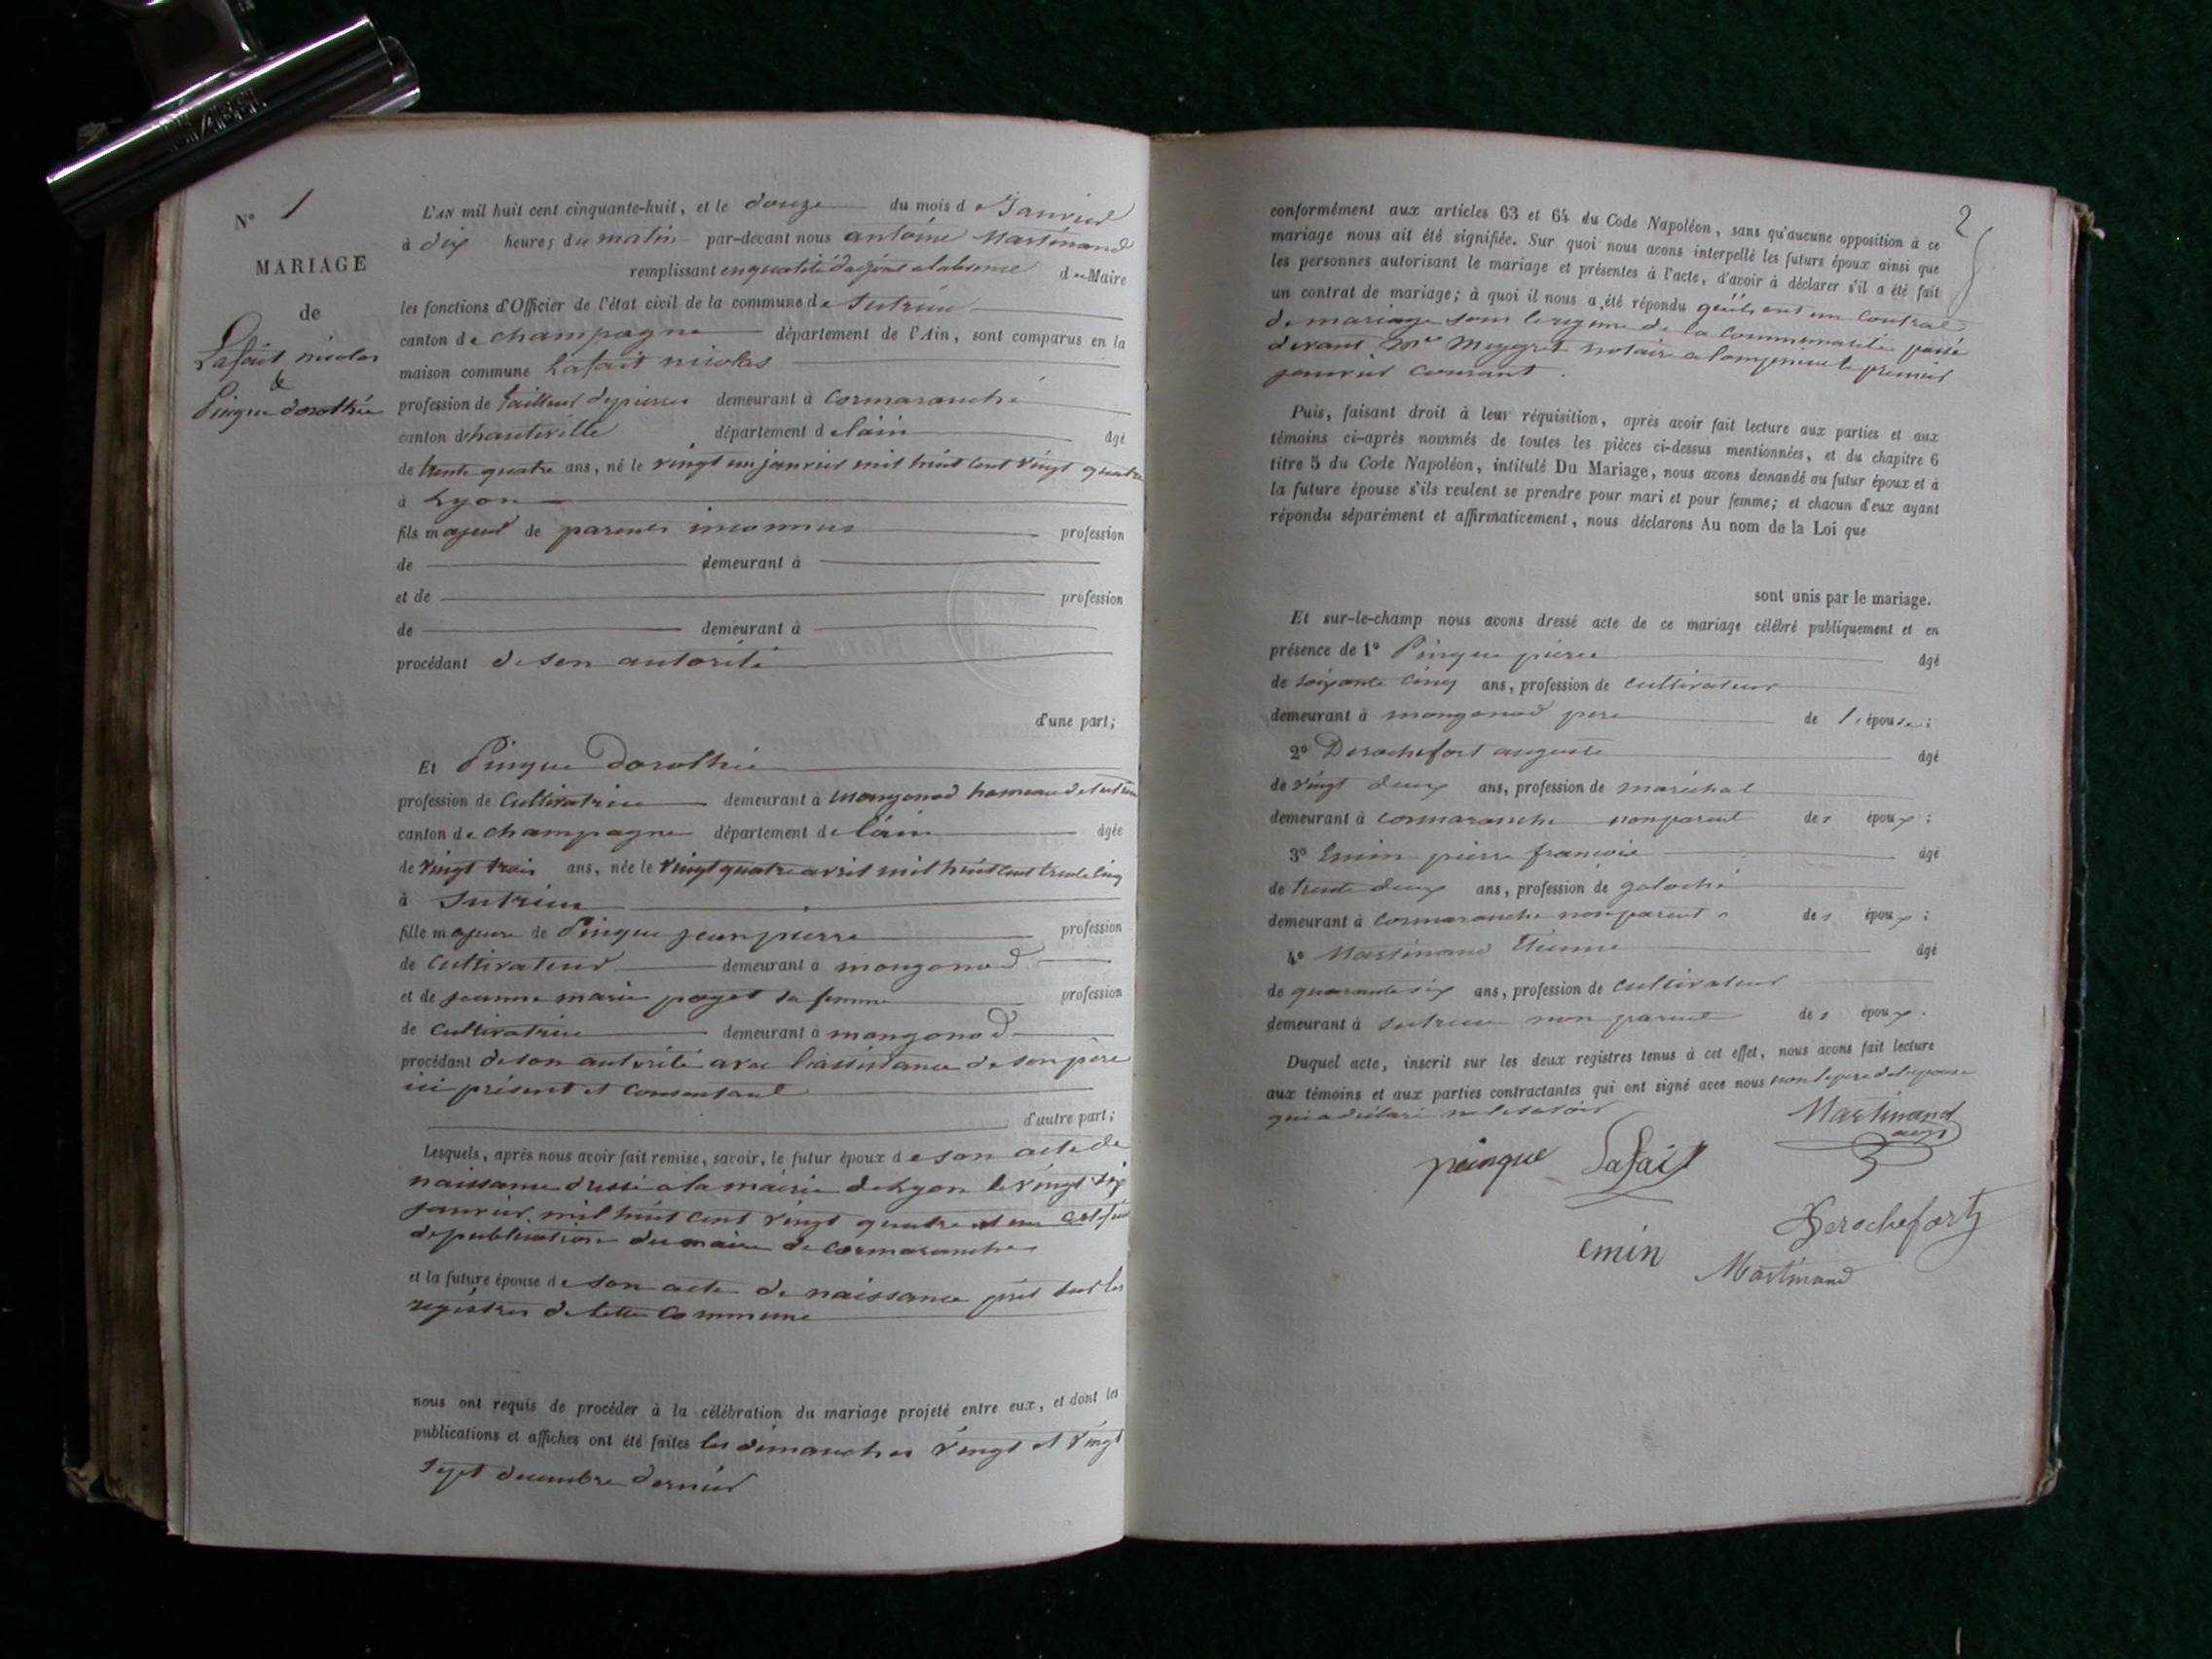 N° 1
MARIAGE
de
Lafait nicolas
&
Pingue dorothée
L'AN mil huit cent cinquante-huit, et le douze du mois de Janvier
à dix heures du matin par-devant nous antoine Martinand
remplissant en qualité d'adjoint a l'absence du Maire
les fonctions d'Officier de l'état civil de la commune de Sutrieu
canton de champagne département de l'Ain, sont comparus en la
maison commune Lafait nicolas
profession de tailleur de pierres demeurant à Cormaranche
canton d'hauteville département de lain âgé
de trente quatre ans, né le vingt un janvier mil huit cent vingt quatre
à Lyon
fils majeur de parents inconnus profession
de demeurant à
et de profession
de demeurant à
procédant de son autorité
d'une part;
Et Pingue Dorothée
profession de Cultivatrice demeurant à mongonod hameau de Sutrieu
canton de champagne département de lain âgée
de vingt trois ans, née le vingt quatre avril mil huit cent trente cinq
à Sutrieu
fille majeure de Pingue jean pierre profession
de Cultivateur demeurant à mongonod
et de jeanne marie payet sa femme profession
de Cultivatrice demeurant à mongonod
procédant de son autorité avec l'assistance de son père
ici présent et Consentant
d'autre part;
Lesquels, après nous avoir fait remise, savoir, le futur époux de son acte de
naissance dressé a la mairie de Lyon le vingt six
janvier mil huit cent vingt quatre et un certificat
de publication du maire de Cormaranche
et la future épouse de son acte de naissance pris sur les
registres de cette Commune
nous ont requis de procéder à la célébration du mariage projeté entre eux, et dont les
publications et affiches ont été faites les dimanches vingt et vingt
sept décembre dernier
2
conformément aux articles 63 et 64 du Code Napoléon, sans qu'aucune opposition à ce
mariage nous ait été signifiée. Sur quoi nous avons interpellé les futurs époux ainsi que
les personnes autorisant le mariage et présentes à l'acte, d'avoir à déclarer s'il a été fait
un contrat de mariage; à quoi il nous a été répondu qu'ils ont un Contrat
de mariage sous le regime de la Communauté passé
devant Me notaire a le premier
janvier Courant.
Puis, faisant droit à leur réquisition, après avoir fait lecture aux parties et aux
témoins ci-après nommés de toutes les pièces ci-dessus mentionnées, et du chapitre 6
titre 5 du Code Napoléon, intitulé Du Mariage, nous avons demandé au futur époux et à
la future épouse s'ils veulent se prendre pour mari et pour femme; et chacun d'eux ayant
répondu séparément et affirmativement, nous déclarons Au nom de la Loi que
sont unis par le mariage.
Et sur-le-champ nous avons dressé acte de ce mariage célébré publiquement et en
présence de 1° Pingue pierre âgé
de soixante cinq ans, profession de cultivateur
demeurant à mongonod pere de l'épouse;
2° Derochefort auguste âgé
de vingt deux ans, profession de maréchal
demeurant à cormaranche non parent des époux;
3° Emin pierre françois âgé
de trente deux ans, profession de galoché
demeurant à Cormaranche non parent des époux;
4° Martinand Etienne âgé
de quarante six ans, profession de cultivateur
demeurant à sutrieu non parent des époux.
Duquel acte, inscrit sur les deux registres tenus à cet effet, nous avons fait lecture
aux témoins et aux parties contractantes qui ont signé avec nous non le pere de l'epouse
qui a déclaré ne le savoir
Martinand
peingue Lafait
Derochefort
emin
Martinand